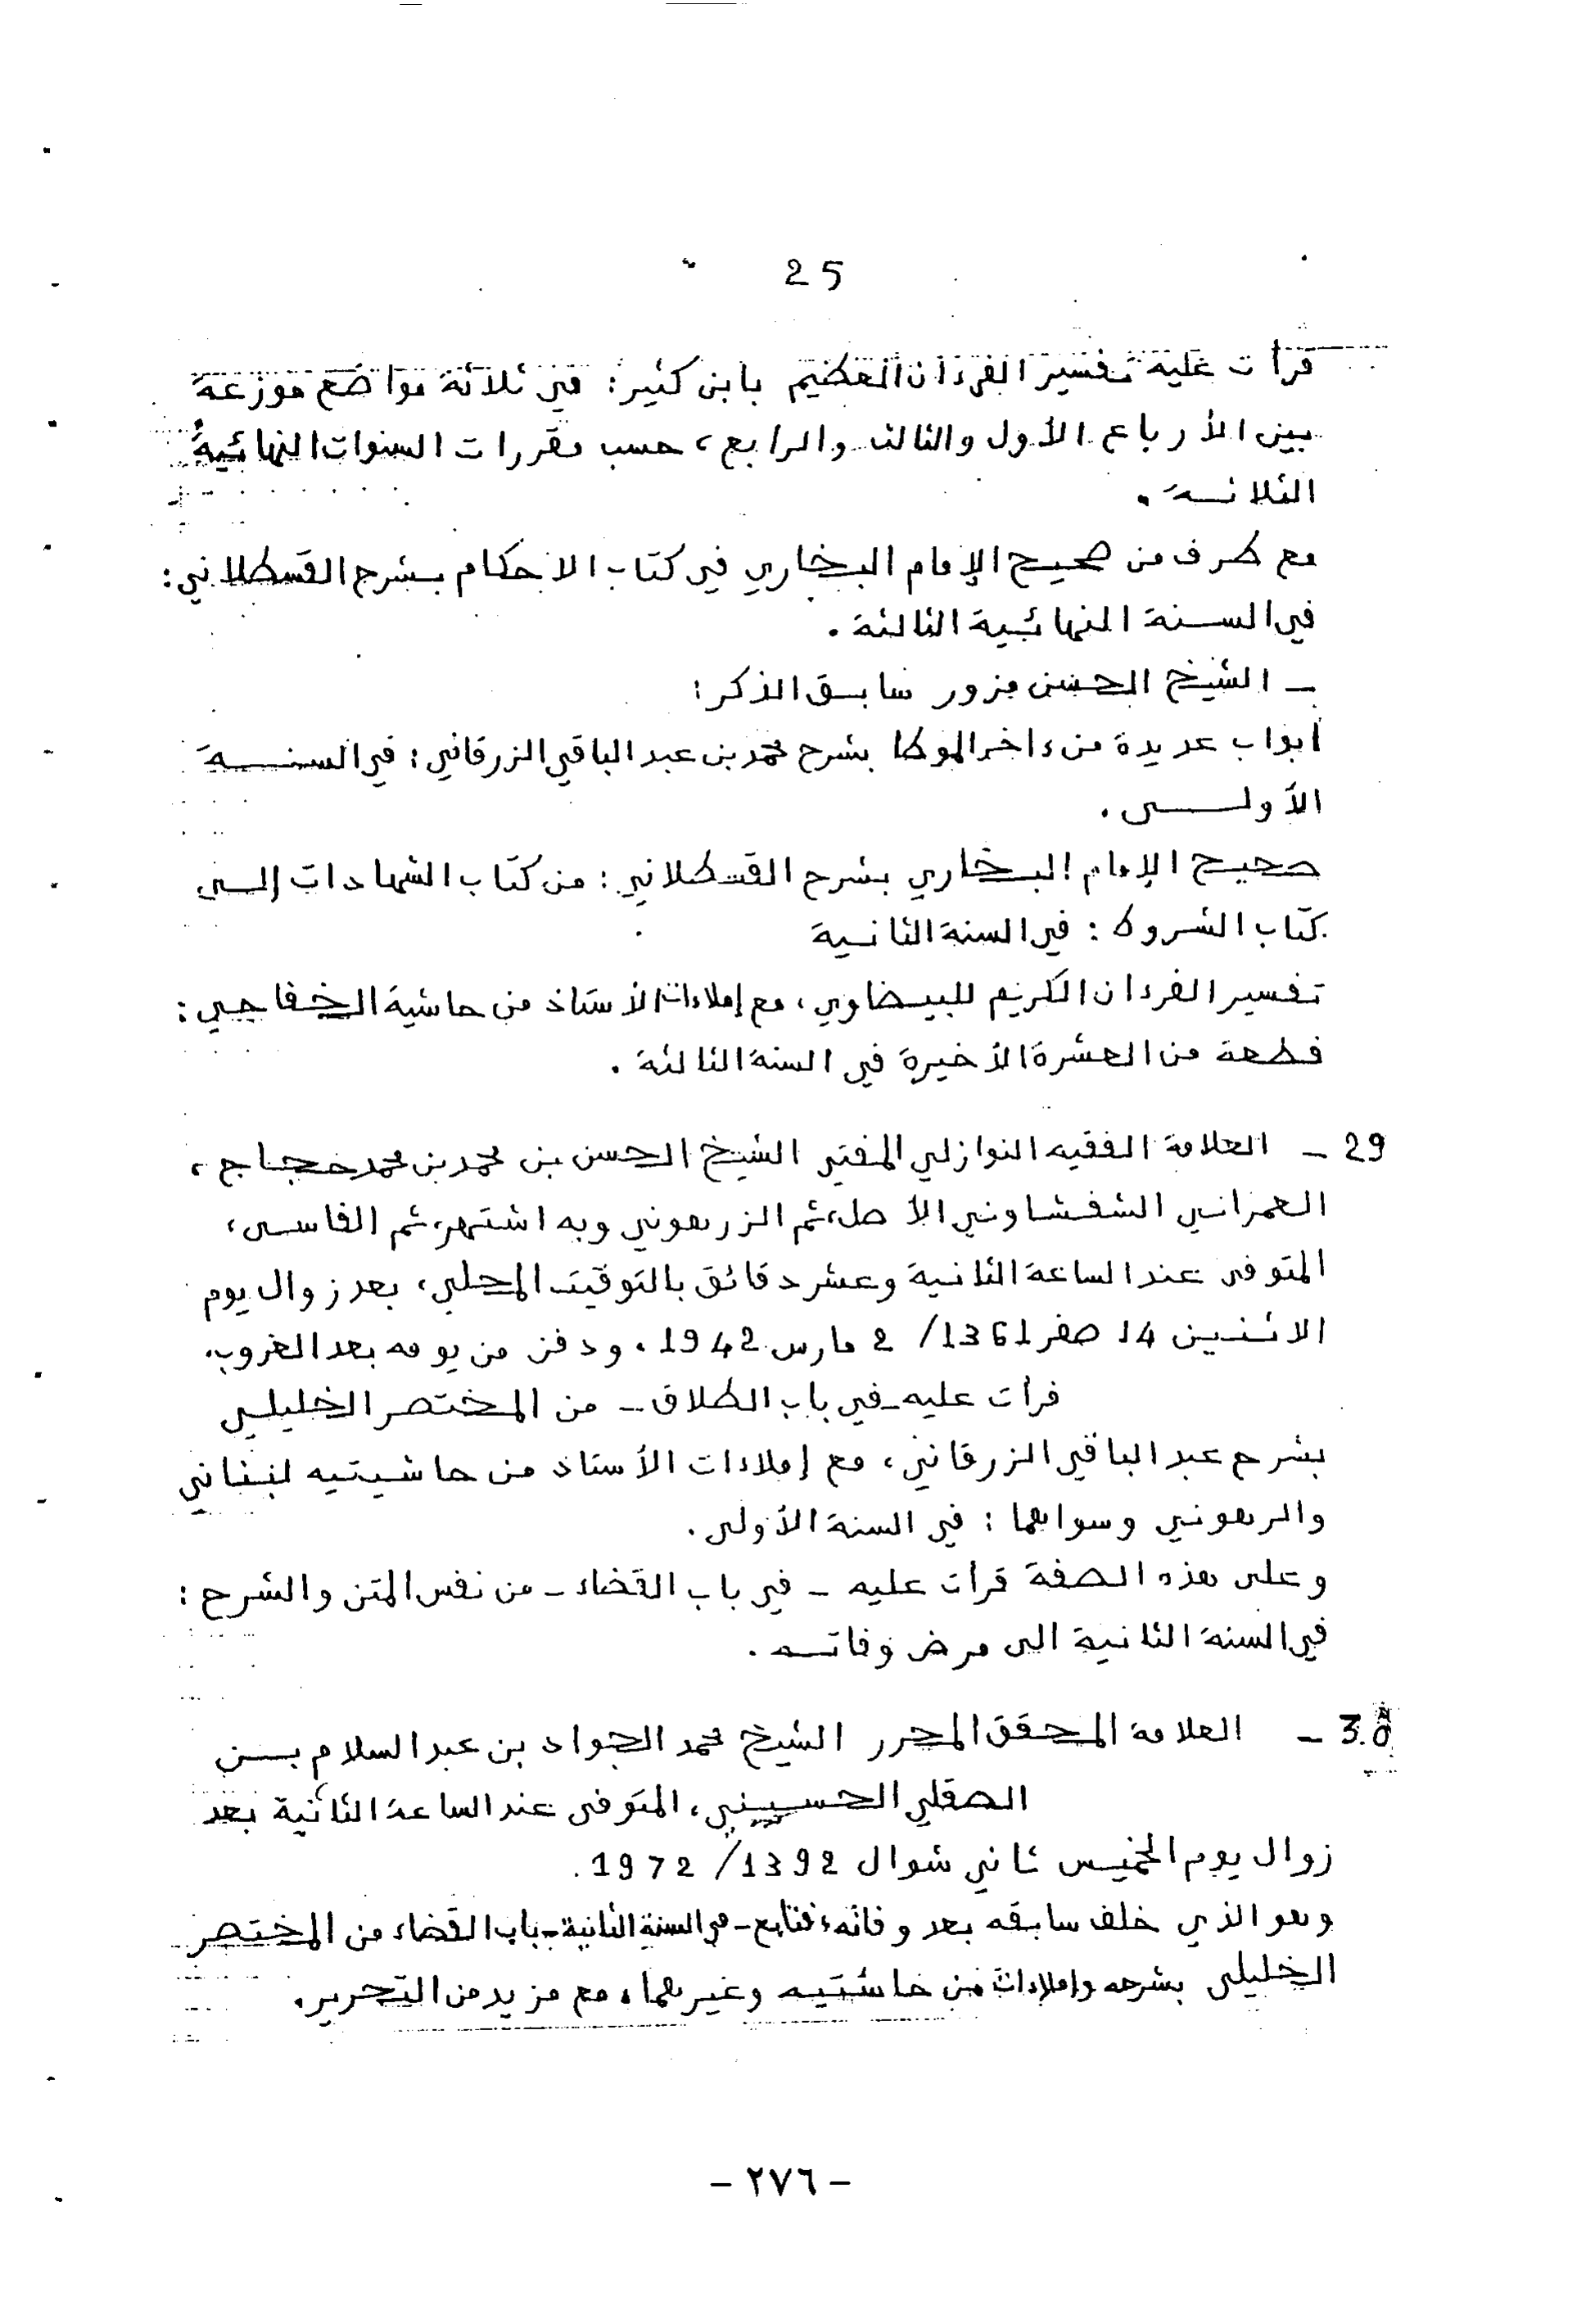 25
قرأت عليه تفسير القرءان العظيم بابن كثير: في ثلاثة مواضع موزعة
بين الأرباع الأول والثالث والرابع، حسب مقررات السنوات النهائية
الثلاثـة.
مع طرف من صحيح الإمام البخاري في كتاب الاحكام بشرح القسطلاني:
في السنة النهائية الثالثة.
ـ الشيخ الحسن مزور سابق الذكر:
أبواب عديدة من ءاخر الموطا بشرح محمد بن عبد الباقي الزرقاني: في السنـــة
الأولـــى.
صحيح الإمام البخاري بشرح القسطلاني: من كتاب الشهادات إلى
كتاب الشروط: في السنة الثانية
تفسير القرءان الكريم للبيضاوي، مع إملاءات الأستاذ من حاشية الخفاجي:
قطعة من العشرة الأخيرة في السنة الثالثة.
29 ـ العلامة الفقيه النوازلي المفتي الشيخ الحسن بن محمد بن محمد حجاج،
العمراني الشفشاوني الأصل، ثم الزرهوني وبه اشتهر، ثم الفاسى،
المتوفى عند الساعة الثانية وعشر دقائق بالتوقيت المحلي، بعد زوال يوم
الاثنين 14 صفر 1361/ 2 مارس 1942. ودفن من يومه بعد الغروب.
قرأت عليه ـ في باب الطلاق ـ من المختصر الخليلي
بشرح عبد الباقي الزرقاني، مع إملاءات الأستاذ من حاشيتيه لبناني
والرهوني وسواهما: في السنة الأولى.
وعلى هذه الصفة قرأت عليه ـ في باب القضاء ـ من نفس المتن والشرح:
في السنة الثانية الى مرض وفاتـه.
30 ـ العلامة المحقق المحرر الشيخ محمد الجواد بن عبد السلام بـن
الصقلي الحسيني، المتوفى عند الساعة الثانية بعد
زوال يوم الخميس ثاني شوال 1392/ 1972.
وهو الذي خلف سابقه بعد وفاته، فتابع ـ في السنة الثانية ـ باب القضاء من المختصر
الخليلى بشرحه وإملاءات من حاشتيه وغيرهما، مع مزيد من التحرير.
ـ ٢٧٦ ـ